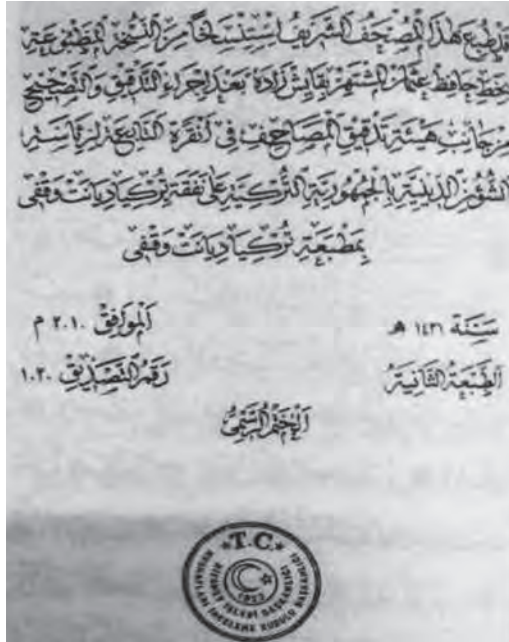 قد طبع هذا المصحف الشريف استنساخا من النسخ المطبوعة
بخط حافظ عثمان المشتهر بقايش زاده بعد اجراء التدقيق والتصحيح
من جانب هيئة تدقيق المصاحف في أنقرة التابعة لرئاسة
الشؤن الدينية بالجمهورية التركية على نفقة تركيا ديانت وقفى
بمطبعة تركيا ديانت وقفى
سنة ١٤٣١ هـ الموافق ٢٠١٠ م
الطبعة الثانية رقم التصديق ١٠٢٠
الختم الرسمى
T.C.
DİYANET İŞLERİ BAŞKANLIĞI
MUSHAFLARI İNCELEME KURULU BAŞKANLIĞI